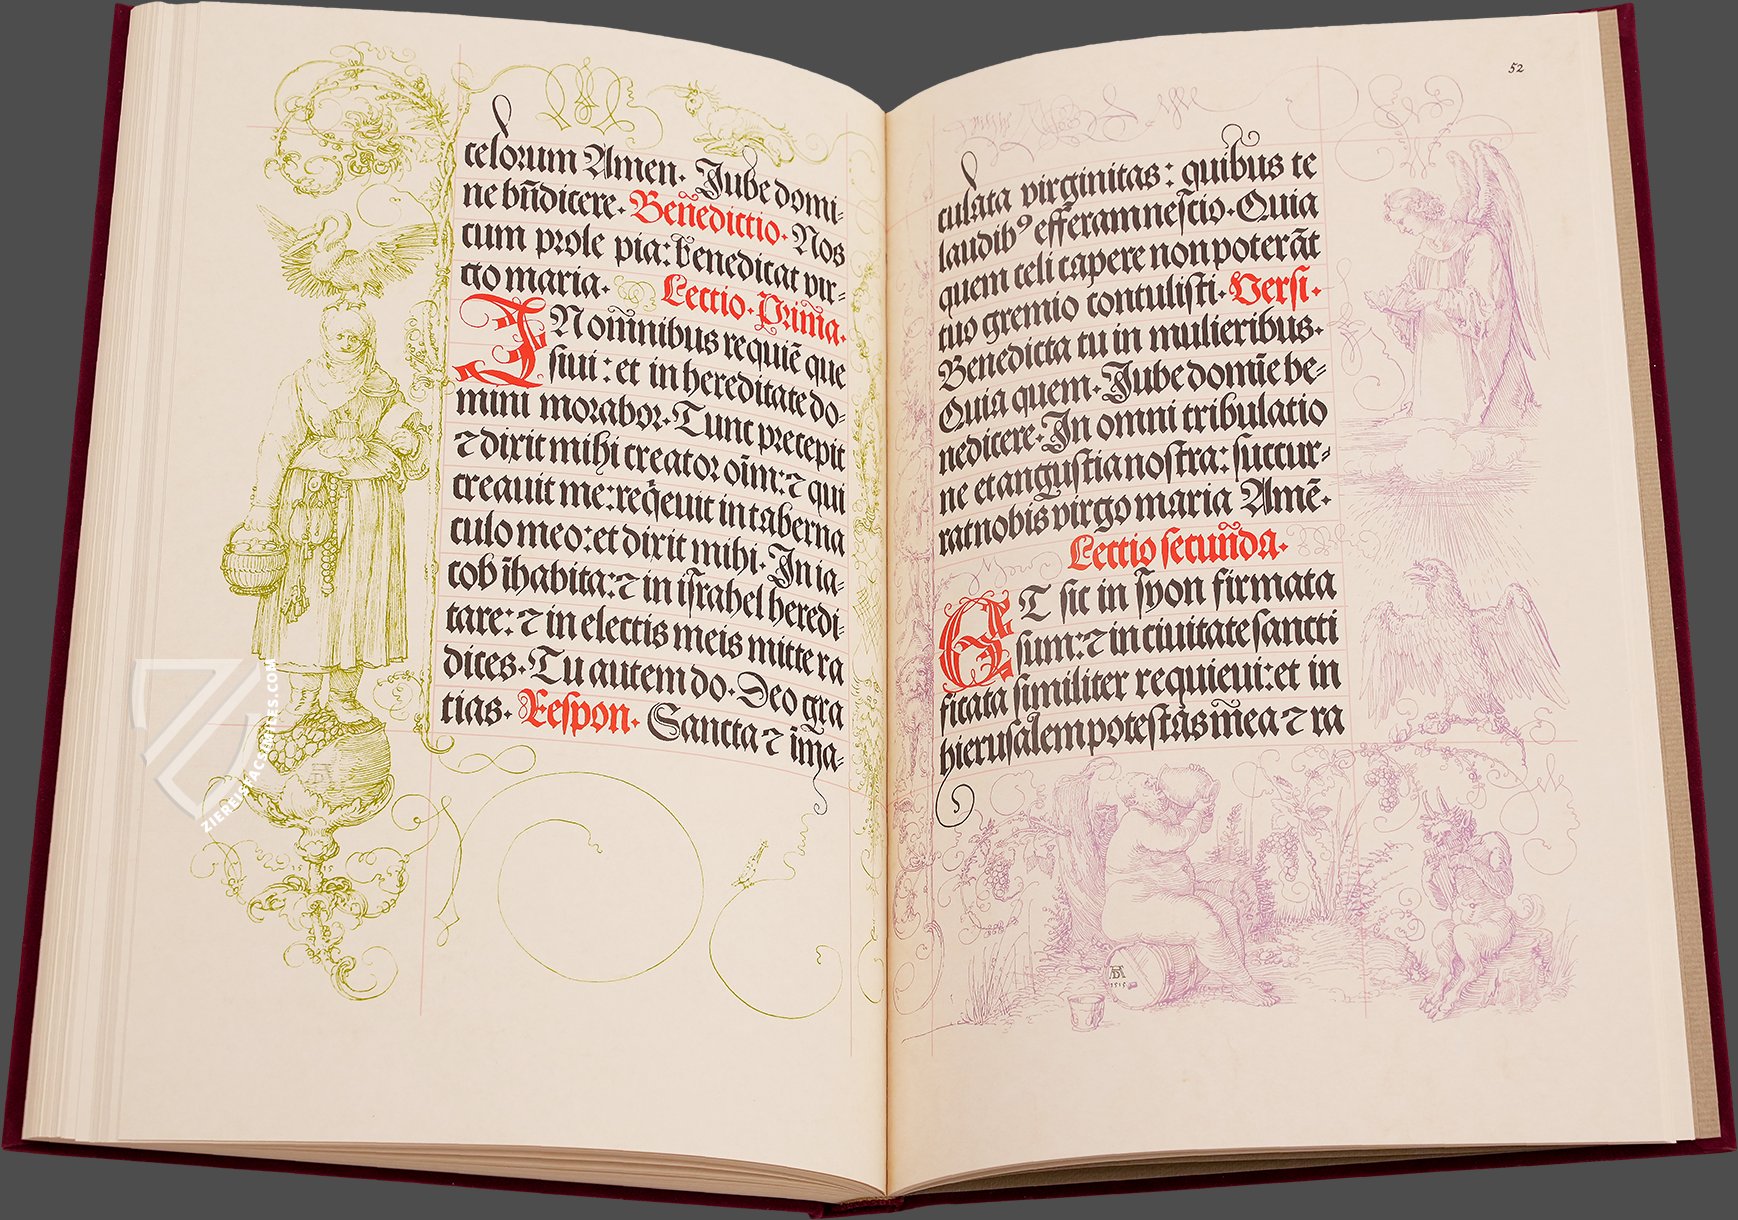 celorum Amen. Jube domi-
ne bn̄dicere. Ben̄edictio. Nos
cum prole pia: benedicat vir-
go maria. Lectio. Prima.
IN om̄nibus requiē que
siui: et in hereditate do-
mini morabor. Tunc precepit
⁊ dixit mihi creator oīm: ⁊ qui
creauit me: reqͥeuit in taberna
culo meo: et dixit mihi. In ia-
cob īhabita: ⁊ in iſrahel heredi-
tare: ⁊ in electis meis mitte ra
dices. Tu autem do. Deo gra
tias. Reſpon. Sancta ⁊ im̄a-
52
culata virginitas: quibus te
laudibꝰ efferam neſcio. Quia
quem celi capere non poterāt
tuo gremio contuliſti. Verſi.
Benedicta tu in mulieribus.
Quia quem. Jube domīe be-
nedicere. In omni tribulatio
ne et anguſtia noſtra: ſuccur-
rat nobis virgo maria Amē.
Lectio ſecūnda.
ET ſic in ſyon firmata
ſum: ⁊ in ciuitate ſancti
ficata ſimiliter requieui: et in
hieruſalem poteſtas m̄ea ⁊ ra
AD
1515
ZIEREIS FACSIMILES.COM